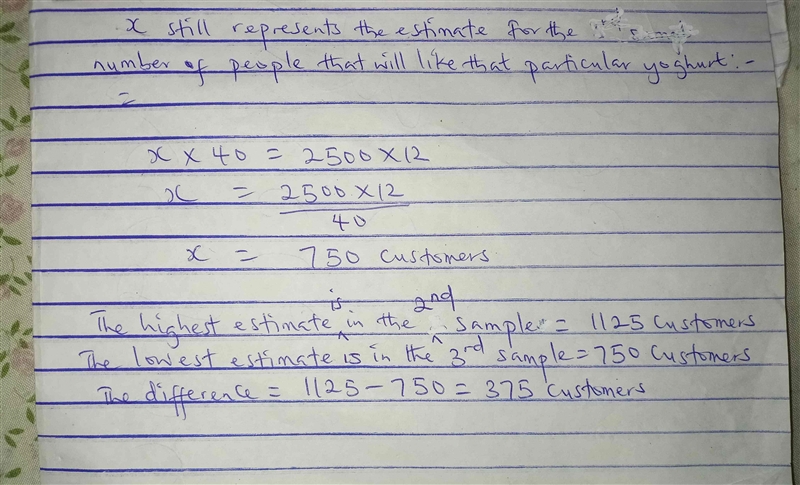 x still represents the estimate for the
number of people that will like that particular yoghurt:-
=
x × 40 = 2500 × 12
x = 2500 × 12
40
x = 750 customers
is 2nd
The highest estimate ^ in the ^ sample = 1125 customers
The lowest estimate is in the 3rd sample = 750 customers
The difference = 1125 - 750 = 375 customers